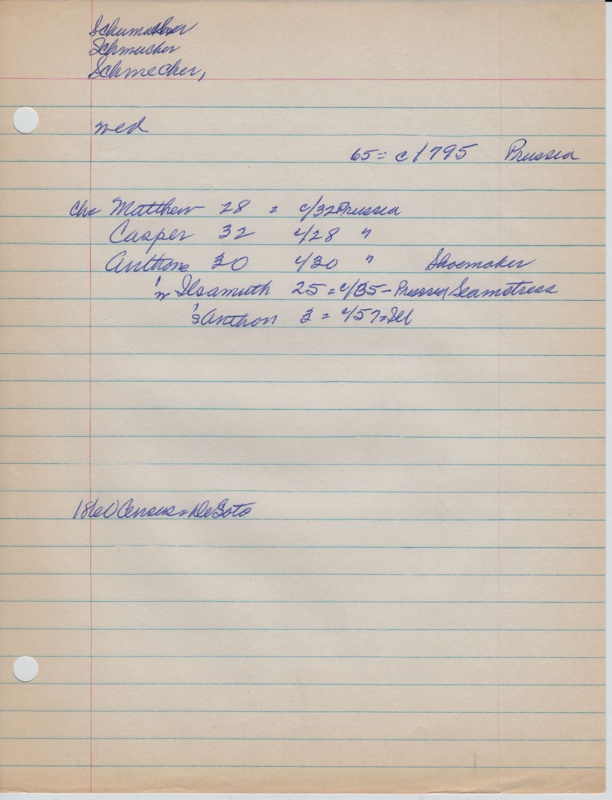 Schumacher
Schmucher
Schmecher,
wed
65 = c1795 Prussia
Chr Matthew 28 = c/32 Prussia
Casper 32 c/28 "
Anthone 30 c/30 " Shoemaker
'w Ilsamuth 25 = c/35 - Prussia Seamstress
's Anthon 3 = c/57 = Ill
1860 Census = DeSoto